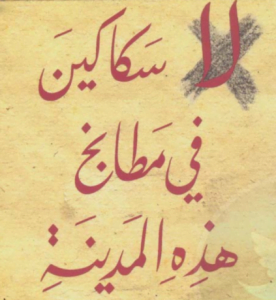 لا سَكاكينَ
في مَطابخِ
هذِهِ المَدينَةِ